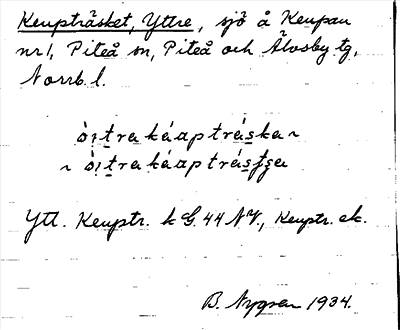 Keupträsket, Yttre, sjö å Keupan
nr 1, Piteå sn, Piteå och Älvsby tg,
Norrb. l.
òıtrakáapträska ~
~ òıtrakáapträsʃʒa
Ytt. Keuptr. k G. 44 NV, Keuptr. ek.
B. Nygren 1934.